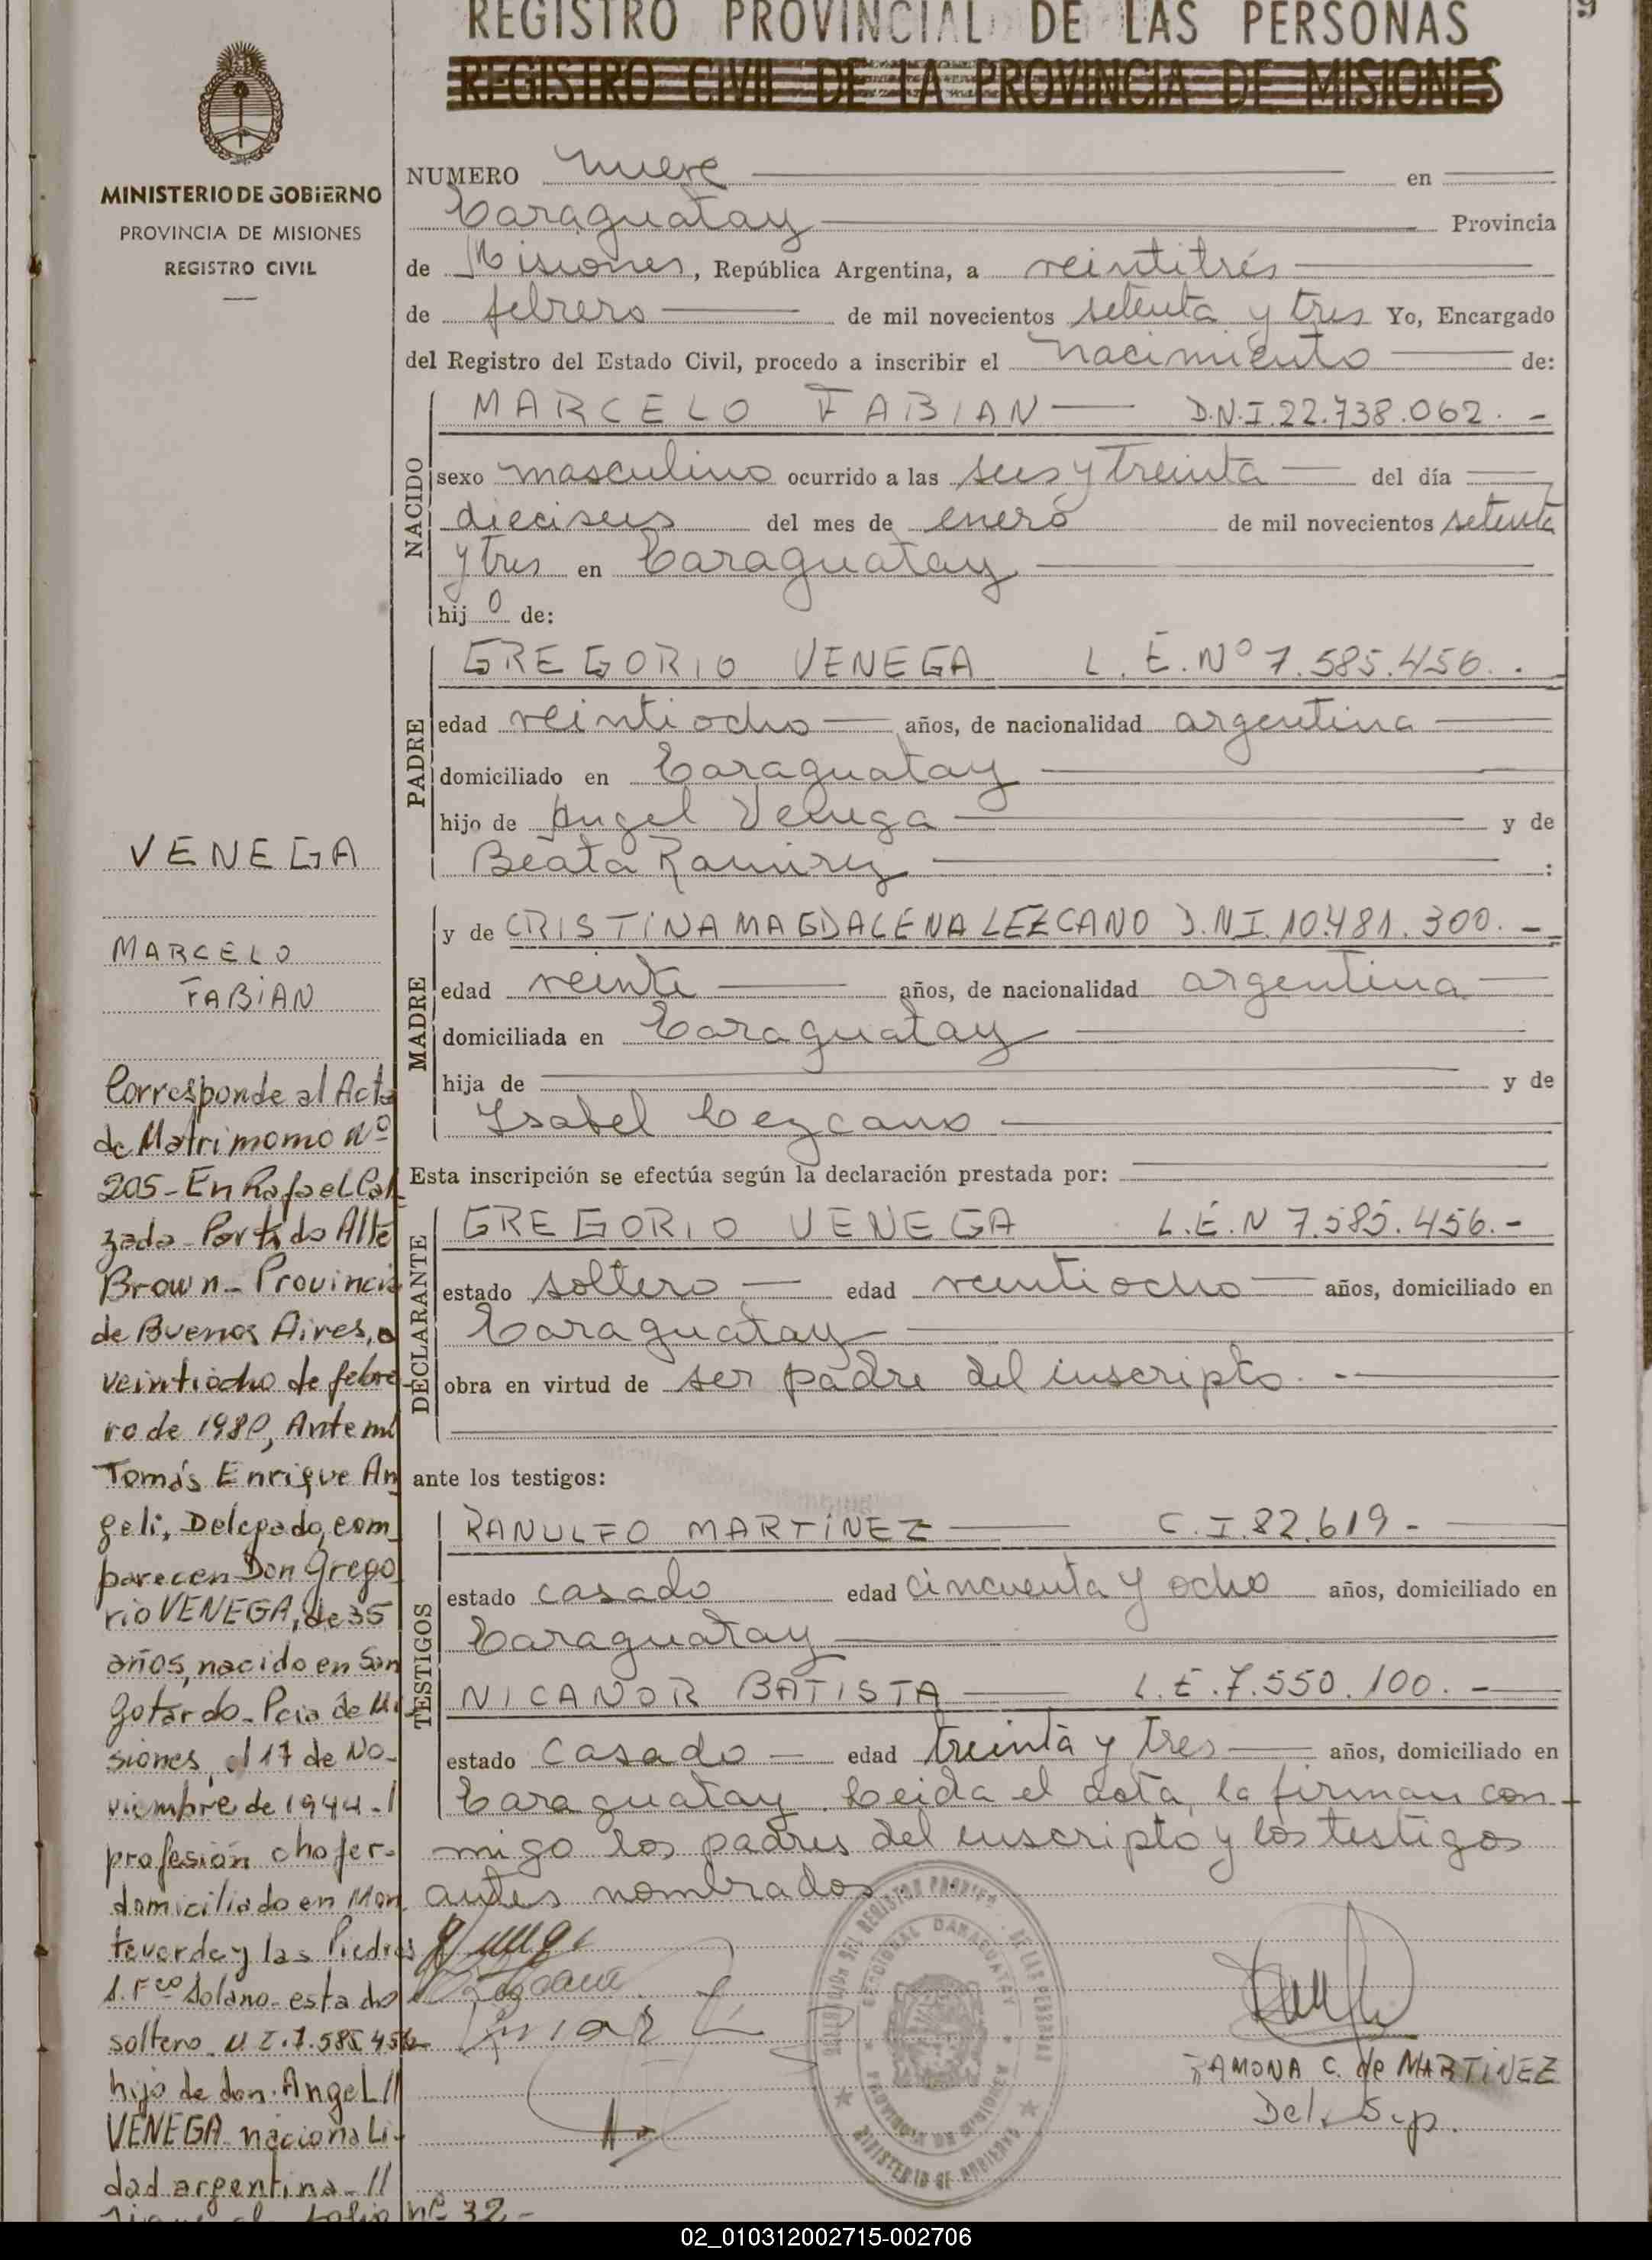 REGISTRO PROVINCIAL DE LAS PERSONAS
REGISTRO CIVIL DE LA PROVINCIA DE MISIONES
MINISTERIO DE GOBIERNO
PROVINCIA DE MISIONES
REGISTRO CIVIL
NUMERO nueve en
Caraguatay Provincia
de Misiones, República Argentina, a veintitrés
de febrero de mil novecientos setenta y tres Yo, Encargado
del Registro del Estado Civil, procedo a inscribir el nacimiento de:
NACIDO
MARCELO FABIAN D.N.I. 22.738.062.-
sexo masculino ocurrido a las seis y treinta del día
dieciseis del mes de enero de mil novecientos setenta
y tres en Caraguatay
hijo de:
PADRE
GREGORIO VENEGA L.E. Nº 7.585.456.
edad veintiocho años, de nacionalidad argentina
domiciliado en Caraguatay
hijo de Angel Venega y de
Beata Ramirez :
MADRE
y de CRISTINA MAGDALENA LEZCANO D.N.I. 10.481.300.-
edad veinte años, de nacionalidad argentina
domiciliada en Caraguatay
hija de y de
Isabel Lezcano
Esta inscripción se efectúa según la declaración prestada por:
DECLARANTE
GREGORIO VENEGA L.E.N 7.585.456.-
estado soltero edad veintiocho años, domiciliado en
Caraguatay
obra en virtud de ser padre del inscripto.-
ante los testigos:
TESTIGOS
RANULFO MARTINEZ C.I. 82.619-
estado casado edad cincuenta y ocho años, domiciliado en
Caraguatay
NICANOR BATISTA L.E. 7.550.100.-
estado casado edad treinta y tres años, domiciliado en
Caraguatay. Leida el acta, la firman con-
migo los padres del inscripto y los testigos
antes nombrados.
RAMONA C. de MARTINEZ
Del. Sup.
VENEGA
MARCELO
FABIAN
Corresponde al Acta
de Matrimonio Nº
205-En Rafael Cal
zada-Partido Alte
Brown-Provincia
de Buenos Aires, a
veintiocho de febre
ro de 1980, Ante mi
Tomás Enrique An
geli, Delegado, com
parecen Don Grego
rio VENEGA, de 35
años, nacido en San
Gotardo-Pcia de Mi
siones, el 17 de No-
viembre de 1944-
profesión chofer-
domiciliado en Mon
teverde y las Piedras
S. Fco Solano-estado
soltero. M.I. 7.585.456
hijo de don Angel //
VENEGA nacionali-
dad argentina-//
Sigue al folio Nº 32-
02_010312002715-002706